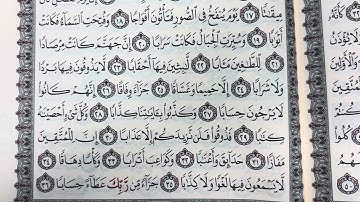 مِيقَٰتًا ١٧ يَوْمَ يُنفَخُ فِى ٱلصُّورِ فَتَأْتُونَ أَفْوَاجًا ١٨ وَفُتِحَتِ ٱلسَّمَآءُ فَكَانَتْ
أَبْوَٰبًا ١٩ وَسُيِّرَتِ ٱلْجِبَالُ فَكَانَتْ سَرَابًا ٢٠ إِنَّ جَهَنَّمَ كَانَتْ مِرْصَادًا
٢١ لِّلطَّٰغِينَ مَـَٔابًا ٢٢ لَّٰبِثِينَ فِيهَآ أَحْقَابًا ٢٣ لَّا يَذُوقُونَ فِيهَا بَرْدًا
وَلَا شَرَابًا ٢٤ إِلَّا حَمِيمًا وَغَسَّاقًا ٢٥ جَزَآءً وِفَاقًا ٢٦ إِنَّهُمْ كَانُوا۟
لَا يَرْجُونَ حِسَابًا ٢٧ وَكَذَّبُوا۟ بِـَٔايَٰتِنَا كِذَّابًا ٢٨ وَكُلَّ شَىْءٍ أَحْصَيْنَٰهُ
كِتَٰبًا ٢٩ فَذُوقُوا۟ فَلَن نَّزِيدَكُمْ إِلَّا عَذَابًا ٣٠ إِنَّ لِلْمُتَّقِينَ
مَفَازًا ٣١ حَدَآئِقَ وَأَعْنَٰبًا ٣٢ وَكَوَاعِبَ أَتْرَابًا ٣٣ وَكَأْسًا دِهَاقًا ٣٤
لَّا يَسْمَعُونَ فِيهَا لَغْوًا وَلَا كِذَّٰبًا ٣٥ جَزَآءً مِّن رَّبِّكَ عَطَآءً حِسَابًا ٣٦